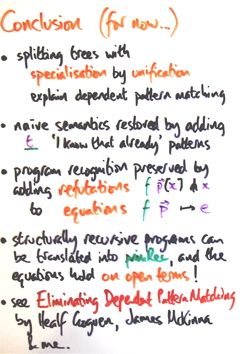 Conclusion (for now...)
• splitting trees with
specialisation by unification
explain dependent pattern matching
• naïve semantics restored by adding
t 'I know that already' patterns
• program recognition preserved by
adding refutations f p⃗[x] ↯ x
to equations f p⃗ ↦ e
• structurally recursive programs can
be translated into, and the
equations hold on open terms!
• see Eliminating Dependent Pattern Matching
by Healf Goguen, James McKinna
& me.